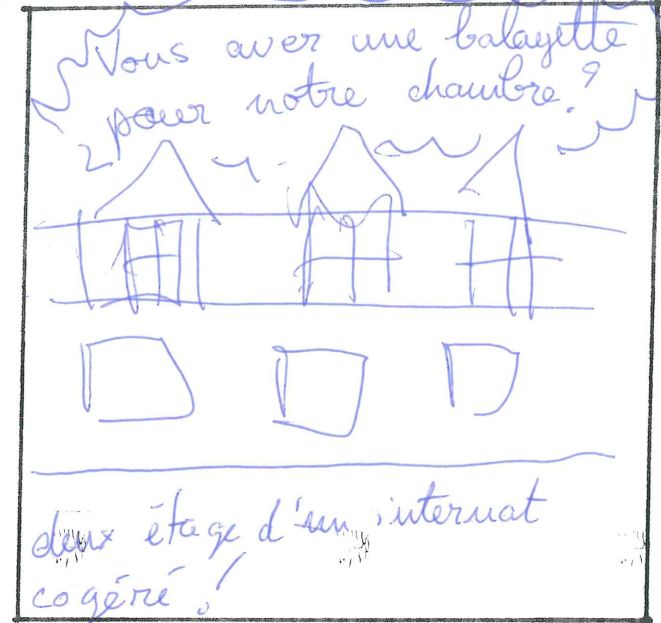 Vous aver une balayette
pour notre chambre ?
deux étage d'un internat
cogéré !